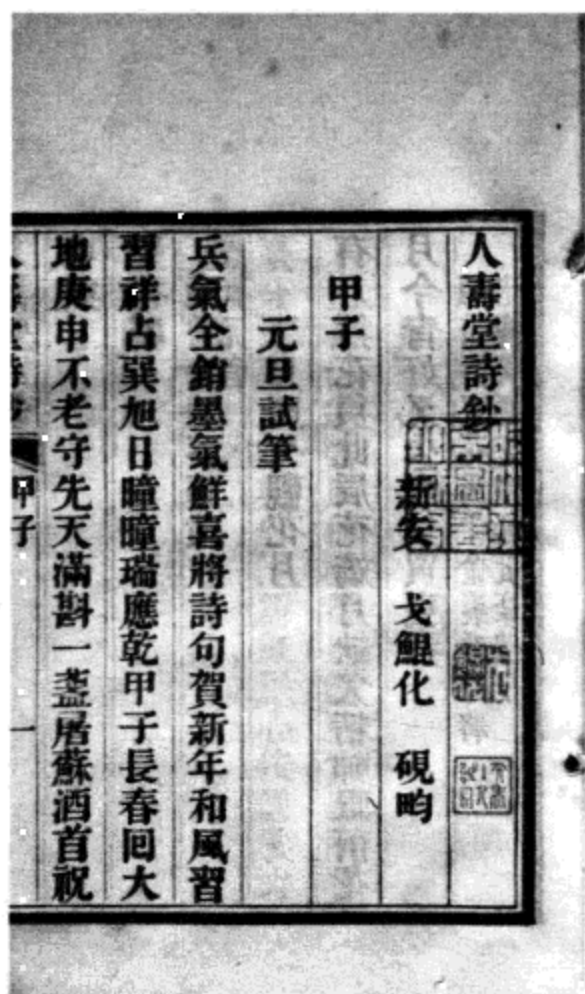 人壽堂詩鈔
新安 戈鯤化 硯畇
甲子
元旦試筆
兵氣全銷墨氣鮮喜將詩句賀新年和風習
習祥占巽旭日曈曈瑞應乾甲子長春回大
地庚申不老守先天滿斟一盞屠蘇酒首祝
甲子 一